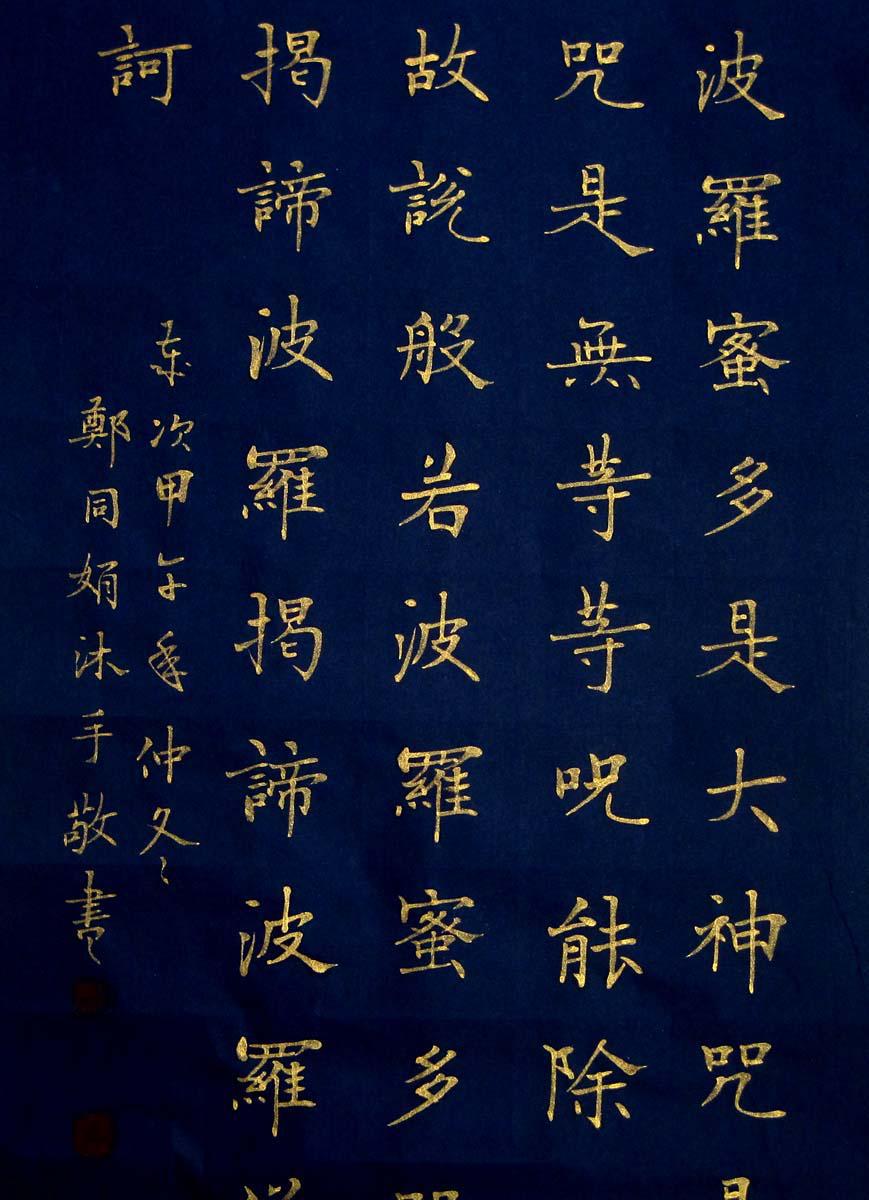 波羅蜜多是大神咒
咒是無等等呪能除
故說般若波羅蜜多
揭諦波羅揭諦波羅
訶
歲次甲午年仲冬
鄭同娟沐手敬書